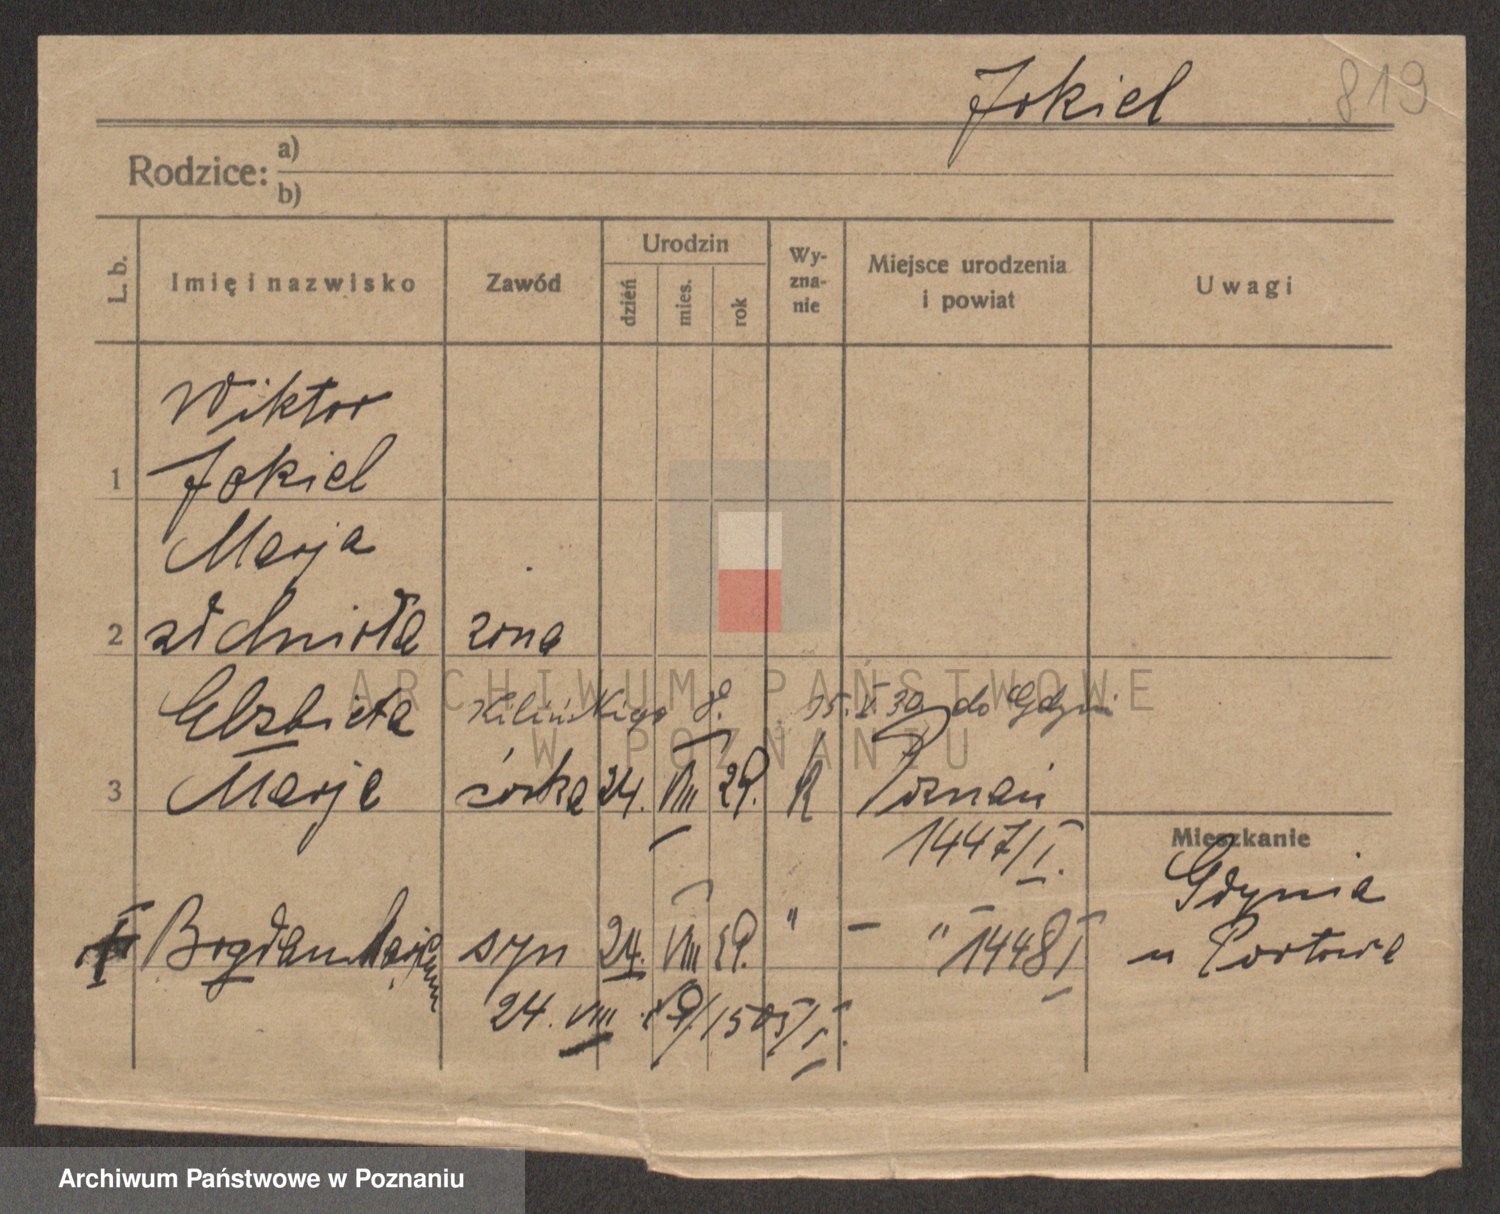 Jokiel 819
Rodzice: a)
b)
L. b. Imię i nazwisko Zawód Urodzin dzień mies. rok Wy-zna-nie Miejsce urodzenia i powiat Uwagi
Wiktor
1 Jokiel
Marja
2 żona
Elzbieta Kilińskiego 8. 15.V.39 do Gdyni
3 Marja córka 24. VIII 29. R Poznań
1447/I.
Mieszkanie
Gdynia
Bogdan syn 24. VIII 29. " - " 1448 I
u Portowa
24. VIII 29/1505/I.
ARCHIWUM PAŃSTWOWE
W POZNANIU
Archiwum Państwowe w Poznaniu